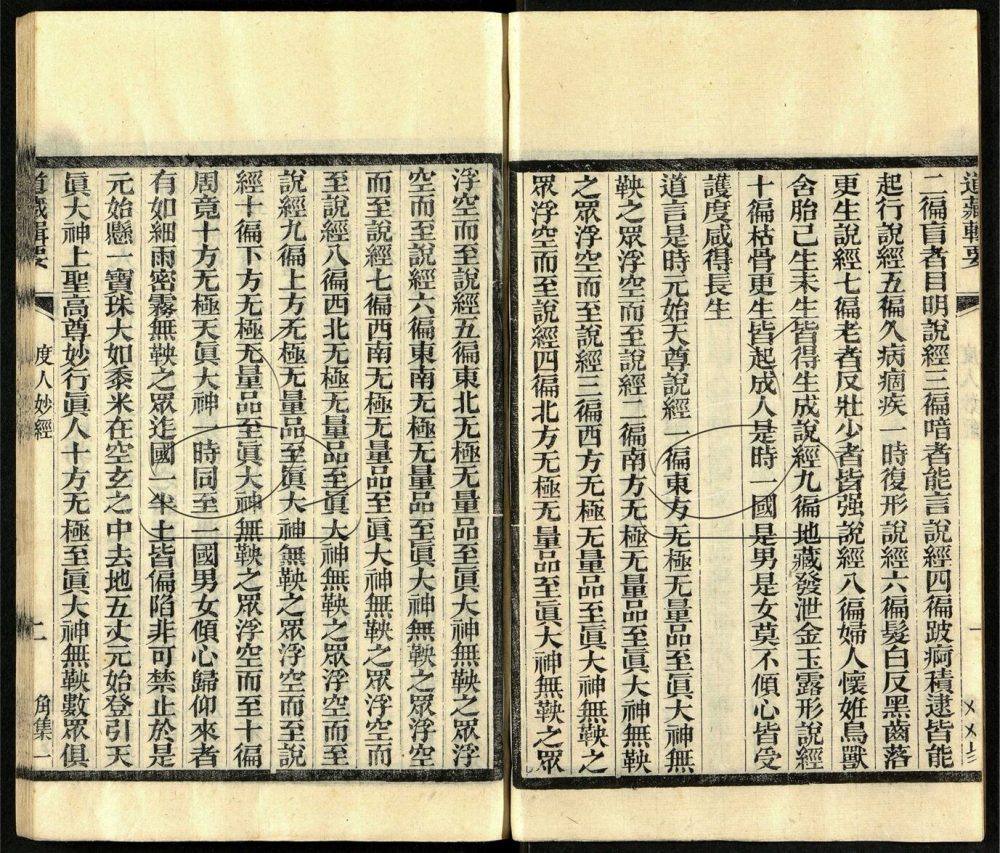 道藏輯要
二徧盲者目明說經三徧喑者能言說經四徧跛痾積逮皆能
起行說經五徧久病痼疾一時復形說經六徧髮白反黑齒落
更生說經七徧老者反壯少者皆强說經八徧婦人懷姙鳥獸
含胎已生未生皆得生成說經九徧地藏發泄金玉露形說經
十徧枯骨更生皆起成人是時一國是男是女莫不傾心皆受
護度咸得長生
道言是時元始天尊說經一徧東方无極无量品至眞大神無
鞅之眾浮空而至說經二徧南方无極无量品至眞大神無鞅
之眾浮空而至說經三徧西方无極无量品至眞大神無鞅之
眾浮空而至說經四徧北方无極无量品至眞大神無鞅之眾
浮空而至說經五徧東北无極无量品至眞大神無鞅之眾浮
空而至說經六徧東南无極无量品至眞大神無鞅之眾浮空
而至說經七徧西南无極无量品至眞大神無鞅之眾浮空而
至說經八徧西北无極无量品至眞大神無鞅之眾浮空而至
說經九徧上方无極无量品至眞大神無鞅之眾浮空而至說
經十徧下方无極无量品至眞大神無鞅之眾浮空而至十徧
周竟十方无極天眞大神一時同至一國男女傾心歸仰來者
有如細雨密霧無鞅之眾迮國一半土皆偏陷非可禁止於是
元始懸一寶珠大如黍米在空玄之中去地五丈元始登引天
眞大神上聖高尊妙行眞人十方无極至眞大神無鞅數眾俱
道藏輯要 度人妙經 二 角集一